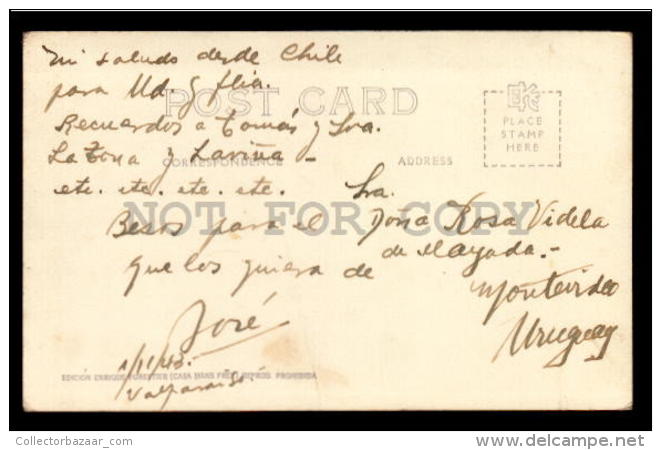 Mi saludo desde Chile
para Ud. y flia.
POST CARD
Recuerdos a Tomás y Sra.
La Tona y Laviña -
CORRESPONDENCE
ADDRESS
etc. etc. etc. etc.
EKC
PLACE
STAMP
HERE
NOT FOR COPY
Besos para el
que los quiera de
José
1/11/43.
Valparaiso.
Sra.
Doña Rosa Videla
de Mayada.-
Montevideo
Uruguay
EDICIÓN ENRIQUE FORESTIER (CASA HANS FREY) REPROD. PROHIBIDA
Collectorbazaar_com
www.delcampe.net